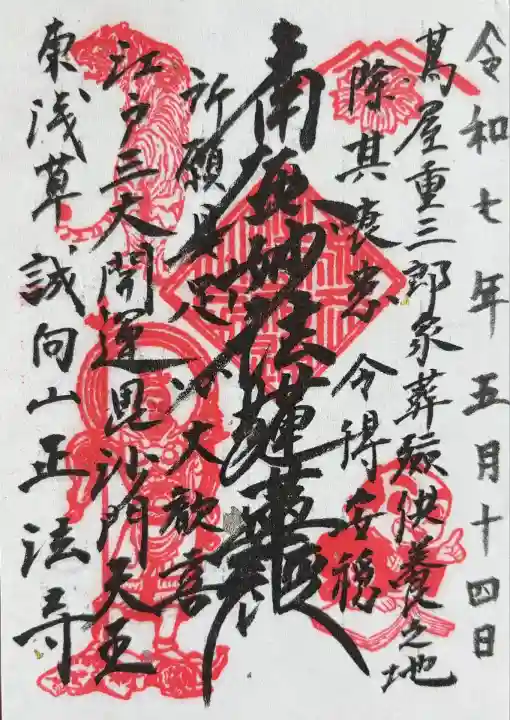 令和七年五月十四日
蔦屋重三郎家葬験供養之地
除其衰患 令得安穏
南無妙法蓮華経
所願具足 心大歓喜
江戸三大開運毘沙門天王
東浅草 誠向山正法寺